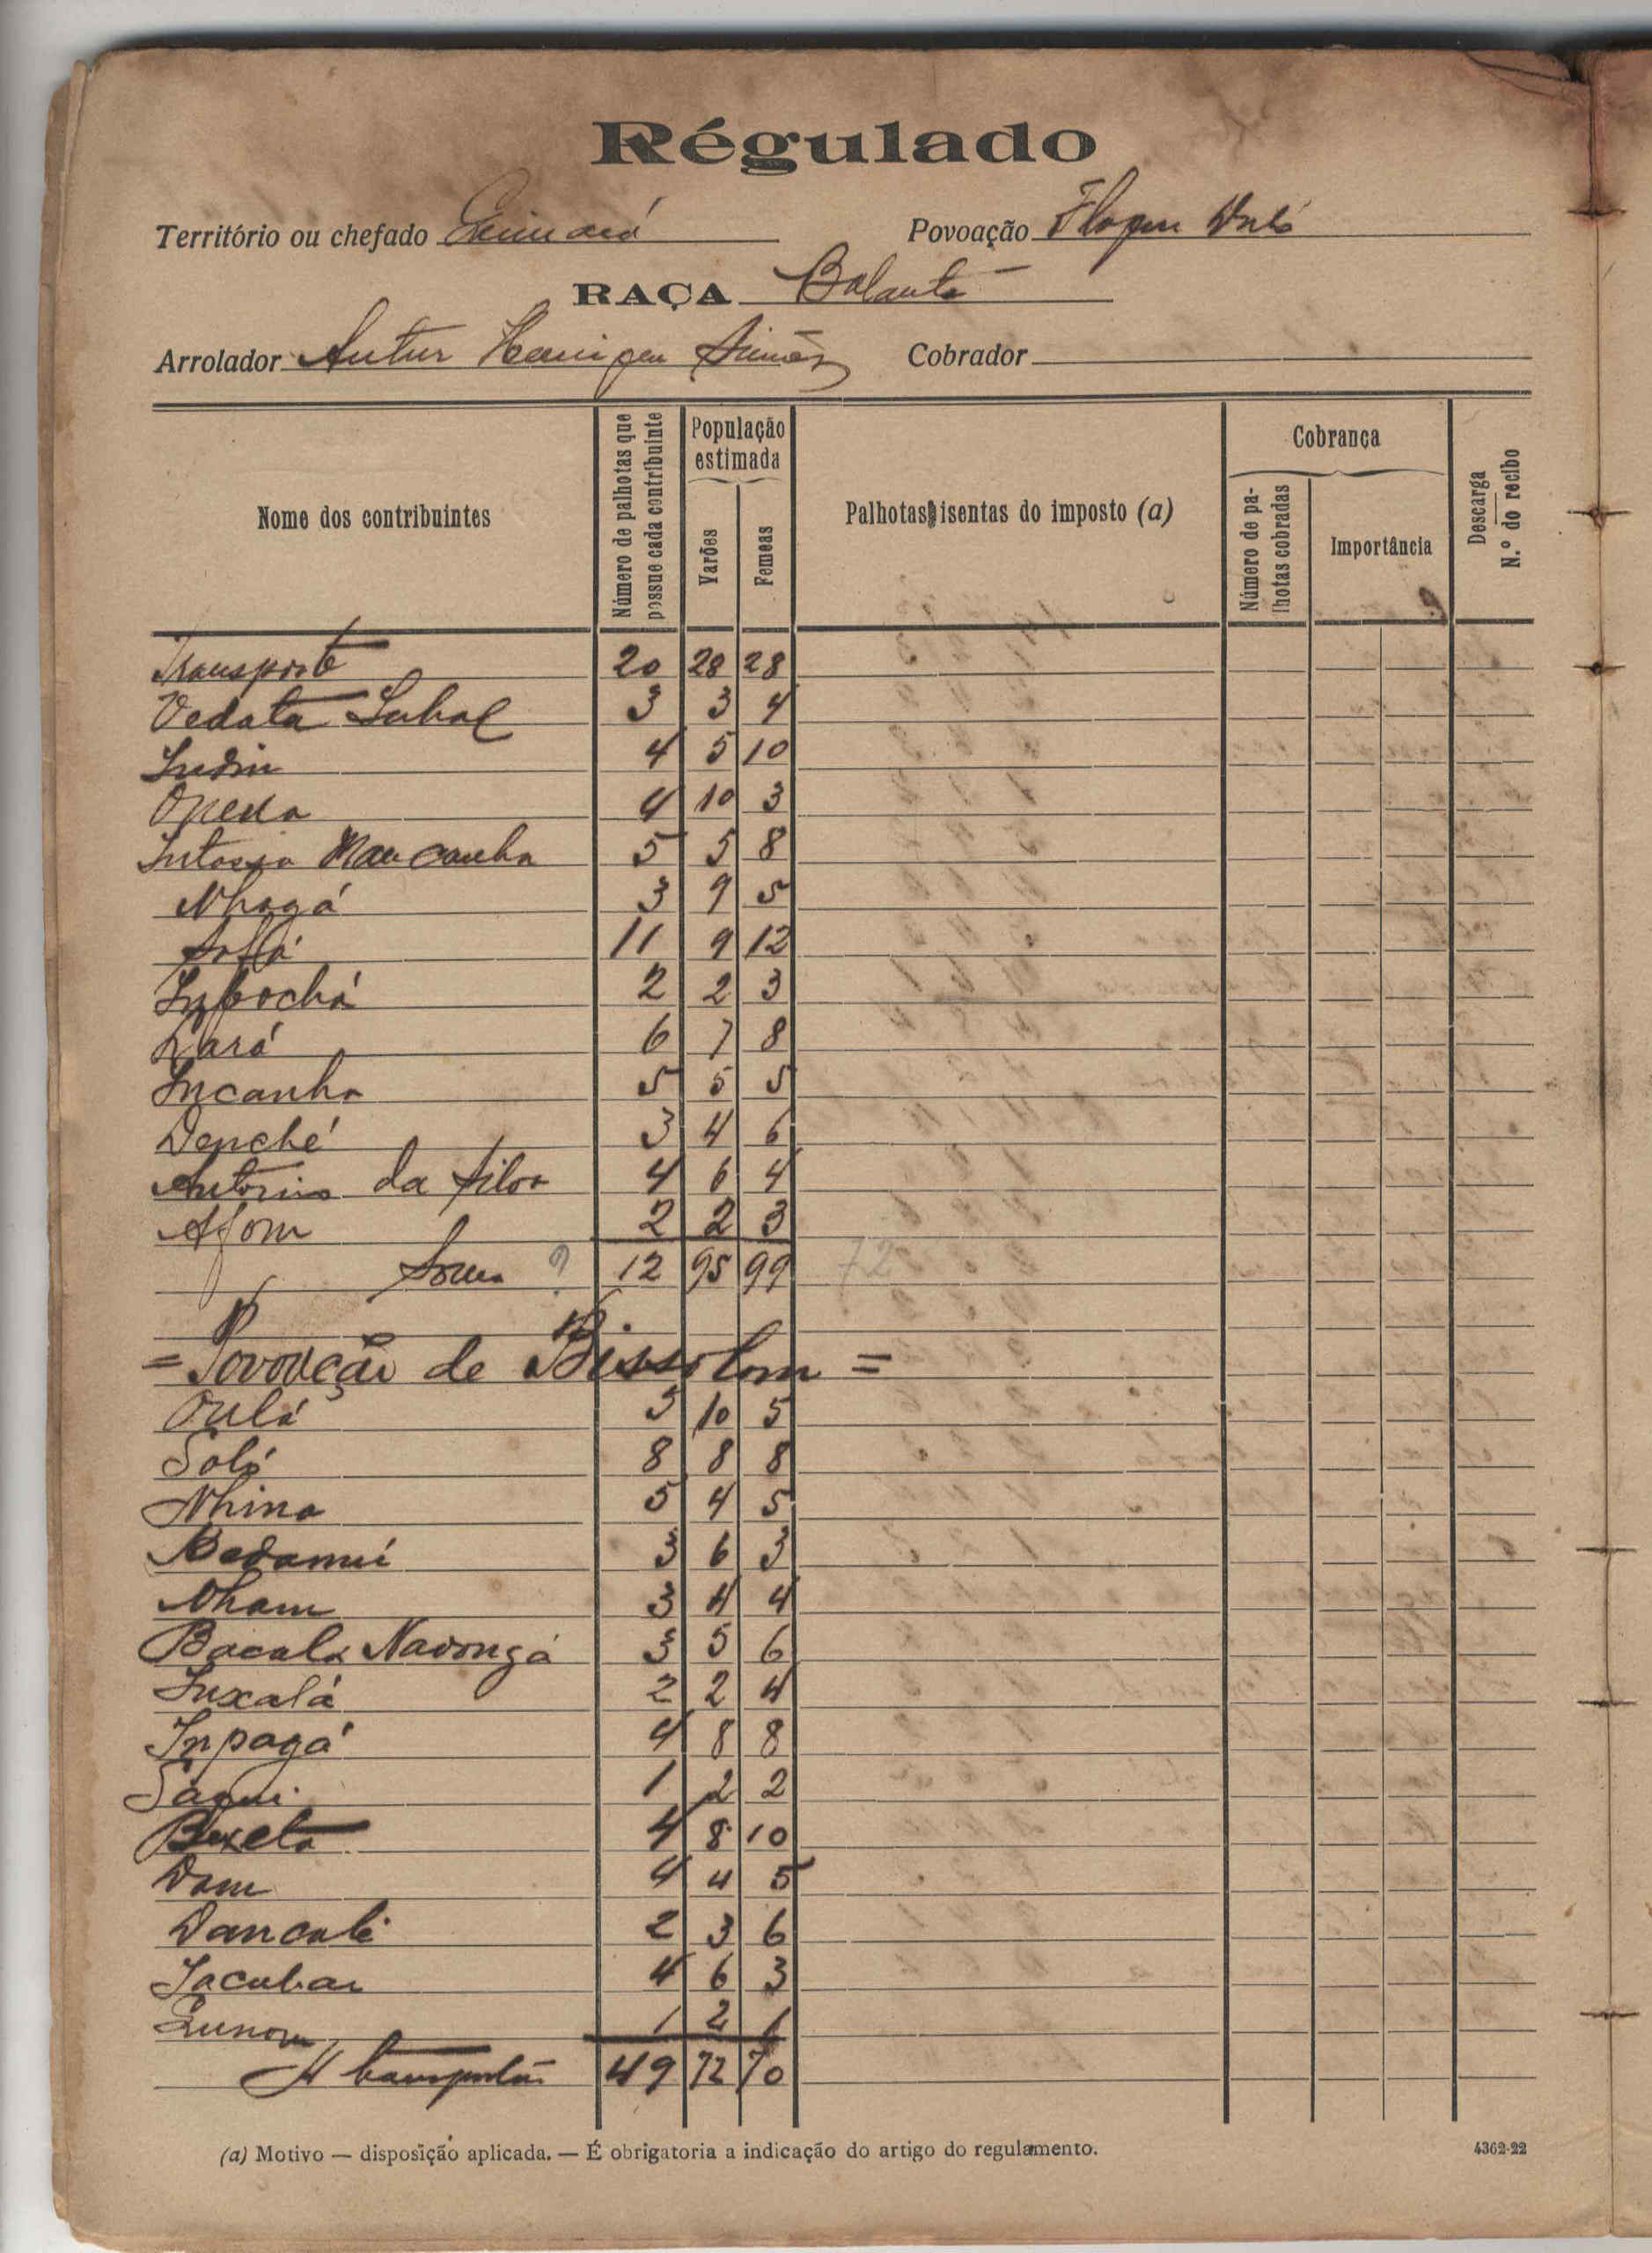 Régulado
Território ou chefado
Povoação
RAÇA Balanta
Arrolador Artur Henrique Simões Cobrador
Nome dos contribuintes
Número de palhotas que possue cada contribuinte
População estimada
Varões
Femeas
Palhotas isentas do imposto (a)
Cobrança
Número de pa-
lhotas cobradas
Importância
Descarga
N.º do recibo
Transporte 20 28 28
Vedata 3 3 4
Indin 4 5 10
4 10 3
Mancanha 5 5 8
Nhagá 3 9 5
11 9 12
2 2 3
6 7 8
Incanha 5 5 5
Denché 3 4 6
Antonio da Silva 4 6 4
Afom 2 2 3
Soma ? 12 95 99 72
= Povoação de Bissolom =
Oulá 5 10 5
8 8 8
Nhina 5 4 5
Bedamui 3 6 3
Nham 3 4 4
Bacala Navongá 3 5 6
Inxalá 2 2 4
Inpagá 4 8 8
1 2 2
Bexeta 4 8 10
Dam 4 4 5
Dancali 2 3 6
Iacubar 4 6 3
1 2 1
A transportar 49 72 70
(a) Motivo — disposição aplicada. — É obrigatoria a indicação do artigo do regulamento.
4362-22